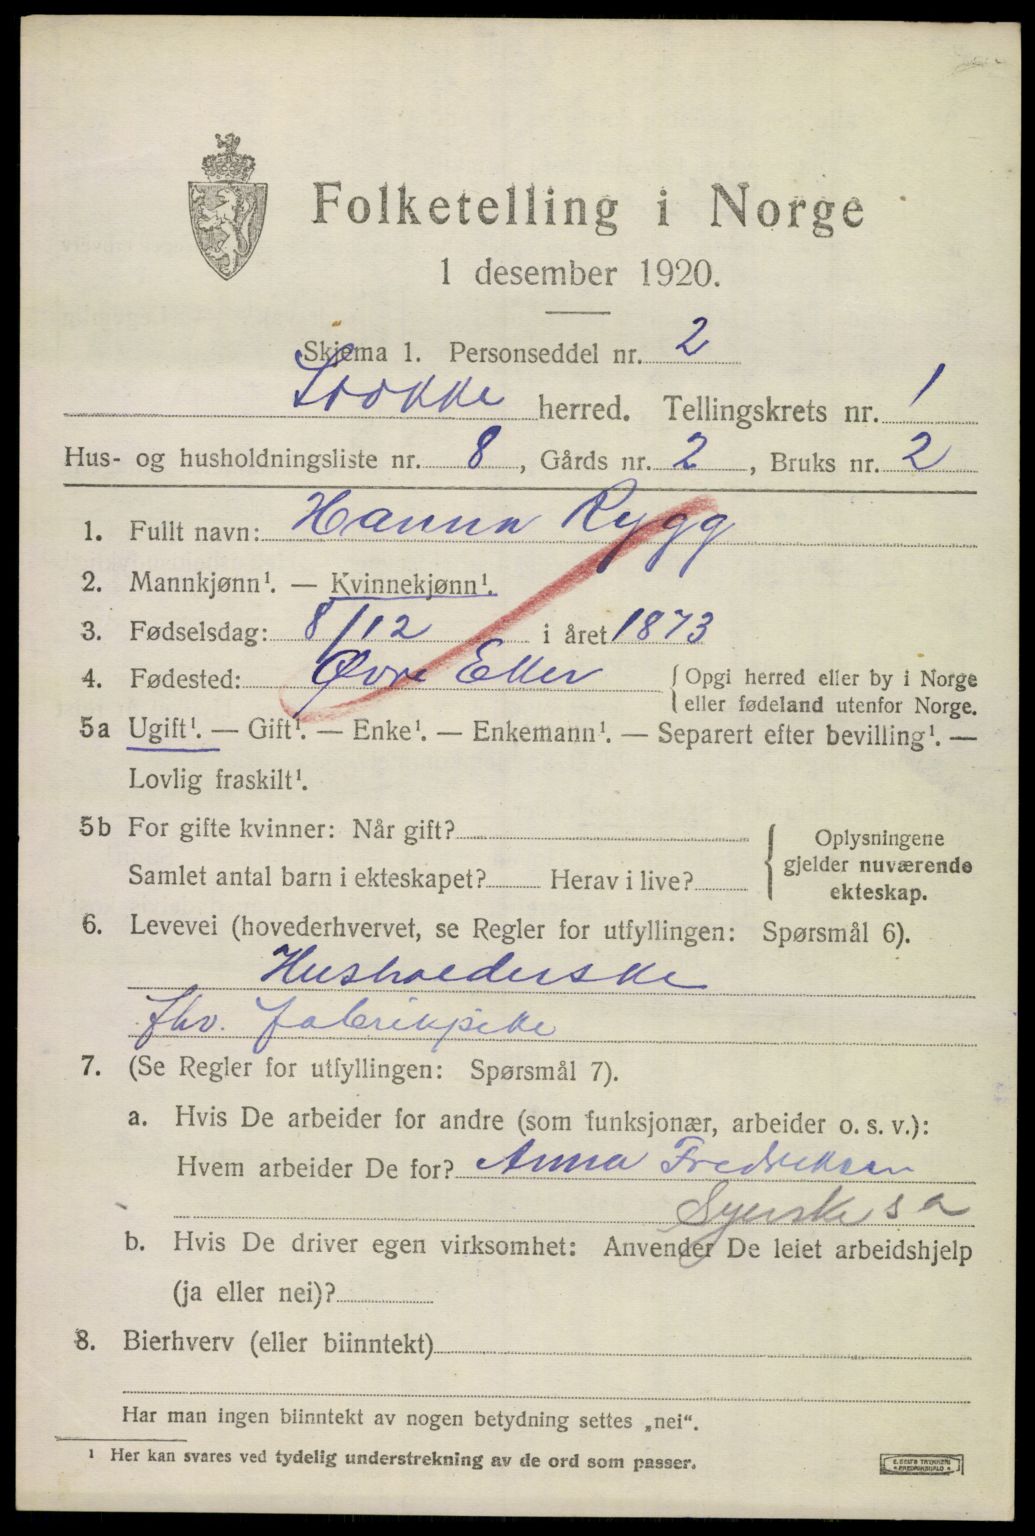 Folketelling i Norge
1 desember 1920.
Skjema 1. Personseddel nr. 2
Stokke herred. Tellingskrets nr. 1
Hus- og husholdningsliste nr. 8, Gårds nr. 2, Bruks nr. 2
1. Fullt navn: Hanna Rygg
2. Mannkjønn¹. — Kvinnekjønn¹.
3. Fødselsdag: 8/12 i året 1873
4. Fødested: Øvre Eker { Opgi herred eller by i Norge
eller fødeland utenfor Norge.
5a Ugift¹. — Gift¹. — Enke¹. — Enkemann¹. — Separert efter bevilling¹. —
Lovlig fraskilt¹.
5b For gifte kvinner: Når gift?
Samlet antal barn i ekteskapet? Herav i live?
Oplysningene
gjelder nuværende
ekteskap.
6. Levevei (hovederhvervet, se Regler for utfyllingen: Spørsmål 6).
Husholderske
fhv. fabrikpike
7. (Se Regler for utfyllingen: Spørsmål 7).
a. Hvis De arbeider for andre (som funksjonær, arbeider o. s. v.):
Hvem arbeider De for? Anna Fredriksen
Syerske s a
b. Hvis De driver egen virksomhet: Anvender De leiet arbeidshjelp
(ja eller nei)?
8. Bierhverv (eller biinntekt)
Har man ingen biinntekt av nogen betydning settes „nei“.
¹ Her kan svares ved tydelig understrekning av de ord som passer.